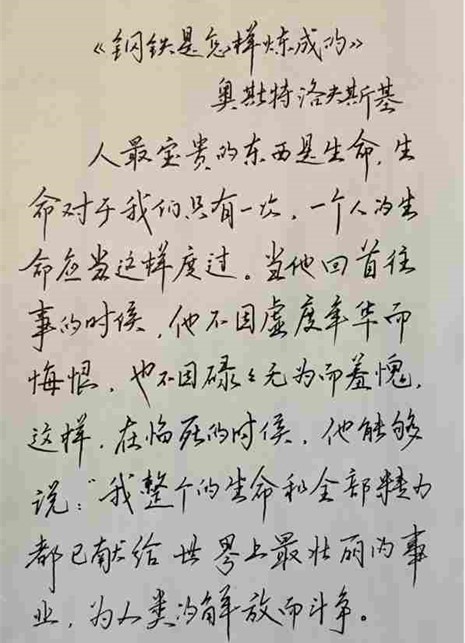 《钢铁是怎样炼成的》
奥斯特洛夫斯基
人最宝贵的东西是生命，生
命对于我们只有一次，一个人的生
命应当这样度过。当他回首往
事的时候，他不因虚度年华而
悔恨，也不因碌々无为而羞愧，
这样，在临死的时候，他能够
说：“我整个的生命和全部精力
都已献给世界上最壮丽的事
业，为人类的解放而斗争。